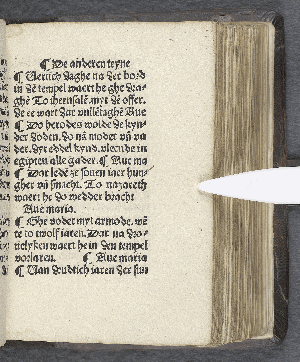 ¶ De anderen teyne
¶ Vertich daghe na der bord
in dē tempel waert he ghe dra-
ghē To iherusalē myt dē offer.
de ee wart dar vullētaghē Aue
¶ Do herodes wolde de kyn-
der doden. do nā moder vn̄ va
der. dyt eddel kynd. vleende in
egipten alle gader. ¶ Aue ma
¶ Dar ledē ze souen iaer hun-
gher vn̄ smacht. To nazareth
waert he do wedder bracht
Aue maria.
¶ Ghe vodet myt armode. wē
te to twolf iaren. Dar na
waert he in den tempel
vorlaren. ¶ Aue maria
¶ Van iaren der